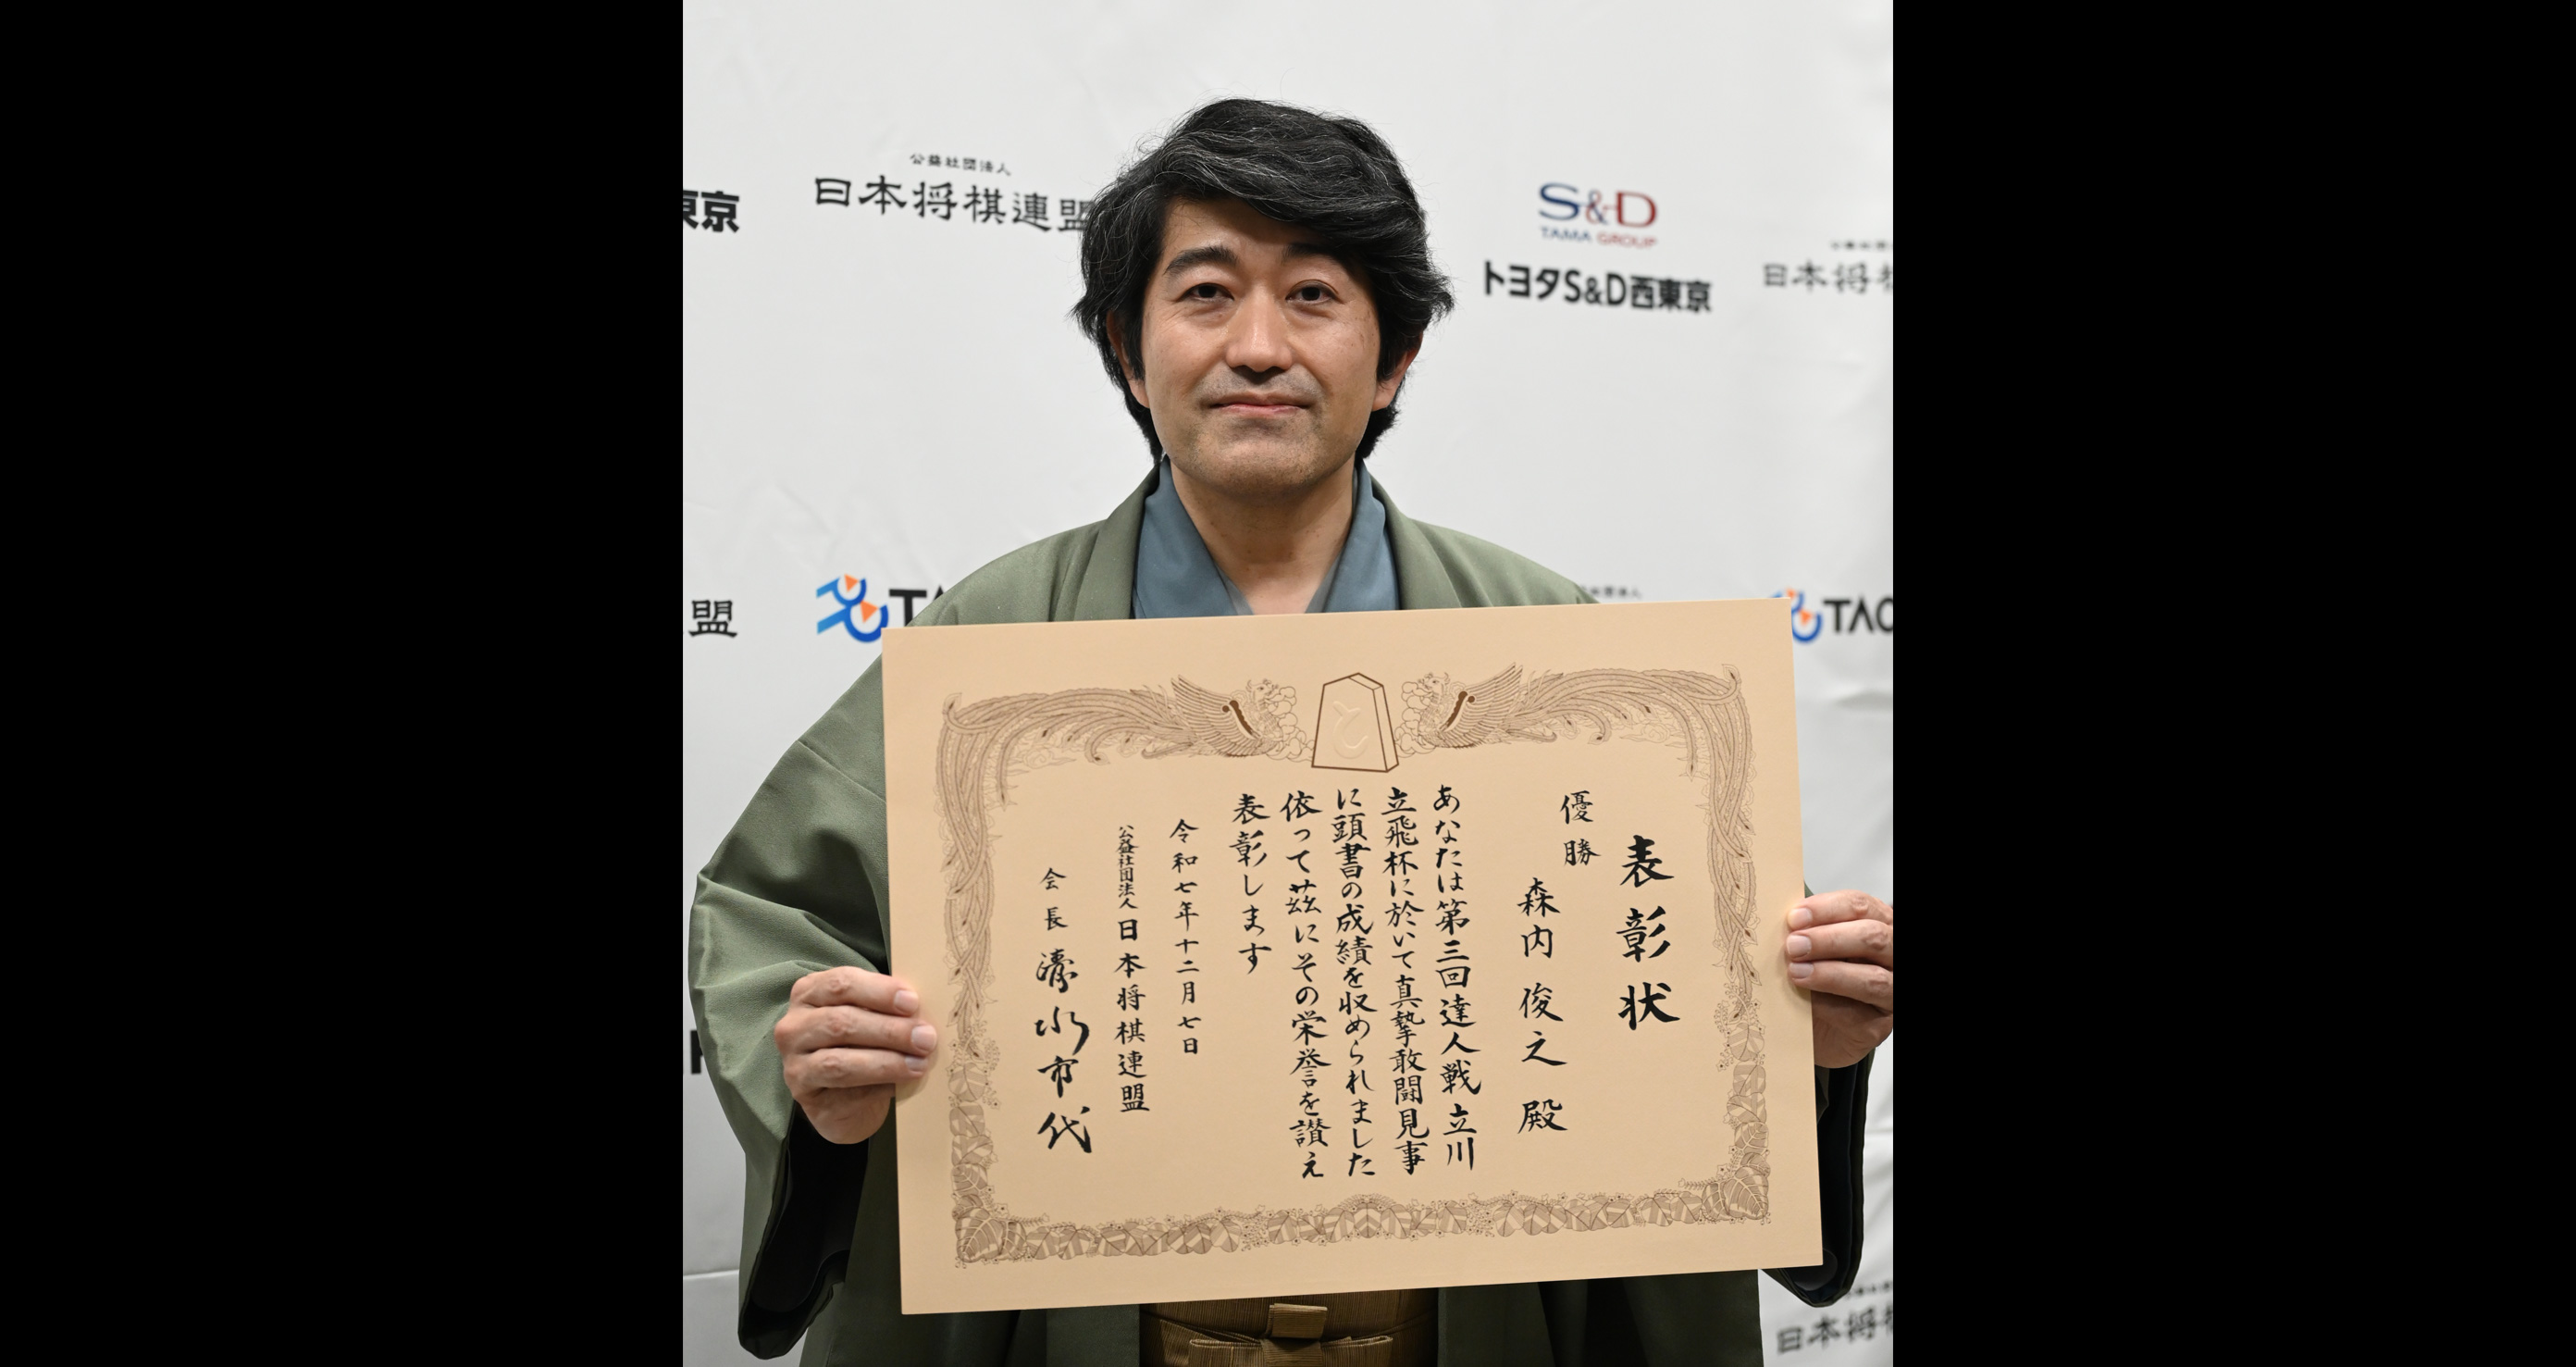 東京
公益社団法人
日本将棋連盟
S&D
TAMA GROUP
トヨタS&D西東京
日本将
盟
TA
TAC
と
表彰状
優勝
森内俊之殿
あなたは第三回達人戦立川
立飛杯に於いて真摯敢闘見事
に頭書の成績を収められました
依って茲にその栄誉を讃え
表彰します
令和七年十二月七日
公益社団法人日本将棋連盟
会長 清水市代
日本将